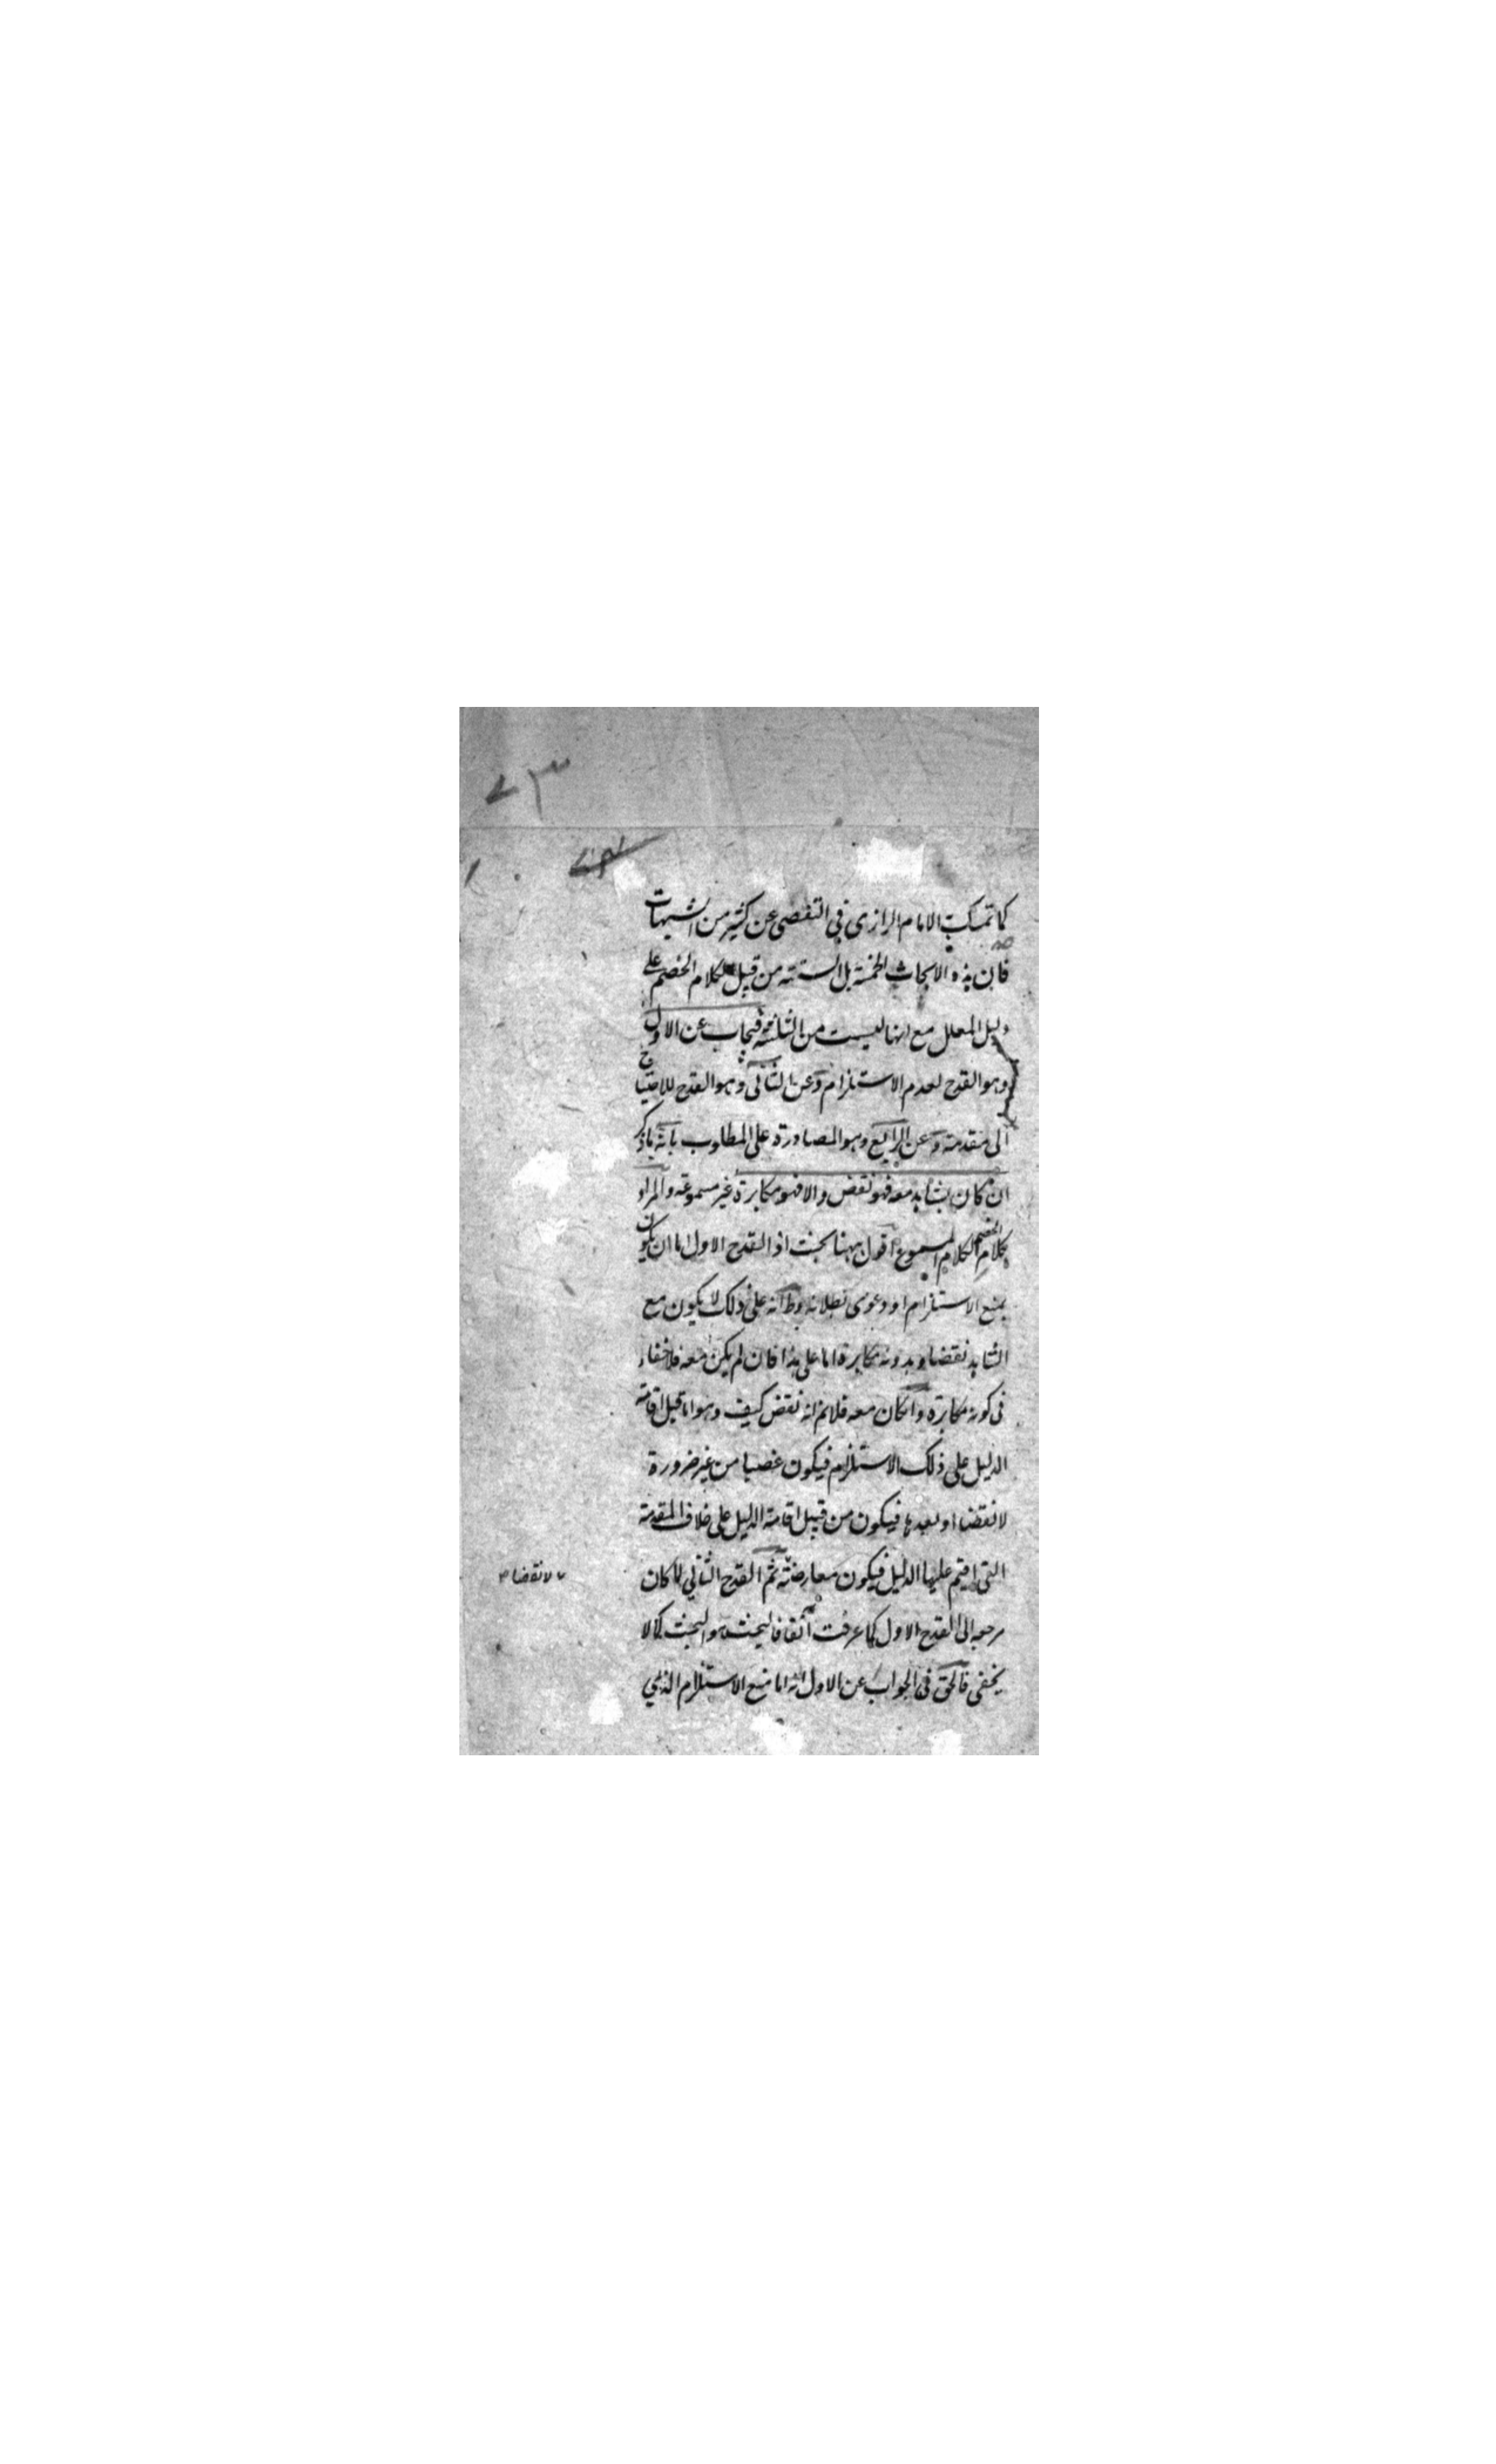 كما تمسك به الامام الرازى فى التفصى عن كثير من الشبهات
فان هذه الابحاث الخمسة بل الستة من قبيل كلام الخصم على
دليل المعلل مع انها ليست من الثلثة فيجاب عن الاول
وهو القدح لعدم الاستلزام وعن الثانى وهو القدح للاحتياج
الى مقدمة وعن الرابع وهو المصادرة على المطلوب بانه ما ذكر
ان كان بشاهد معه فهو نقض والا فهو مكابرة غير مسموعة والمراد
بكلام الخصم الكلام المسموع اقول ههنا بحث اذ القدح الاول اما ان يكون
بمنع الاستلزام او دعوى بطلانه وظ انه على ذلك لا يكون مع
الشاهد نقضا وبدونه مكابرة اما على هذا فان لم يكن معه فلا خفاء
فى كونه مكابرة وان كان معه فلانم انه نقض كيف وهو اما قبل اقامة
الدليل على ذلك الاستلزام فيكون غصبا من غير ضرورة
لا نقضا او بعدها فيكون من قبيل اقامة الدليل على خلاف المقدمة
التى اقيم عليها الدليل فيكون معارضة ثم القدح الثانى لما كان
لا نقضا
مرجعه الى القدح الاول كما عرفت آنفا فالبحث هو البحث كما لا
يخفى فالحق فى الجواب عن الاول انه اما منع الاستلزام الذى